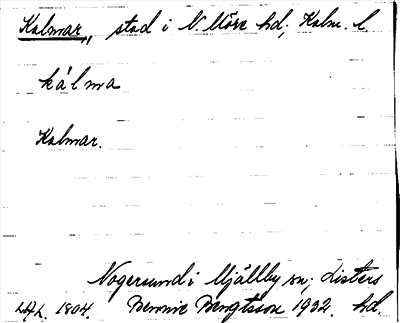 Kalmar, stad i N. Möre hd; Kalm. l.
kálma
Kalmar.
Nogersund i Mjällby sn; Listers
LAL. 1804. Bennie Bengtsson 1932. hd.